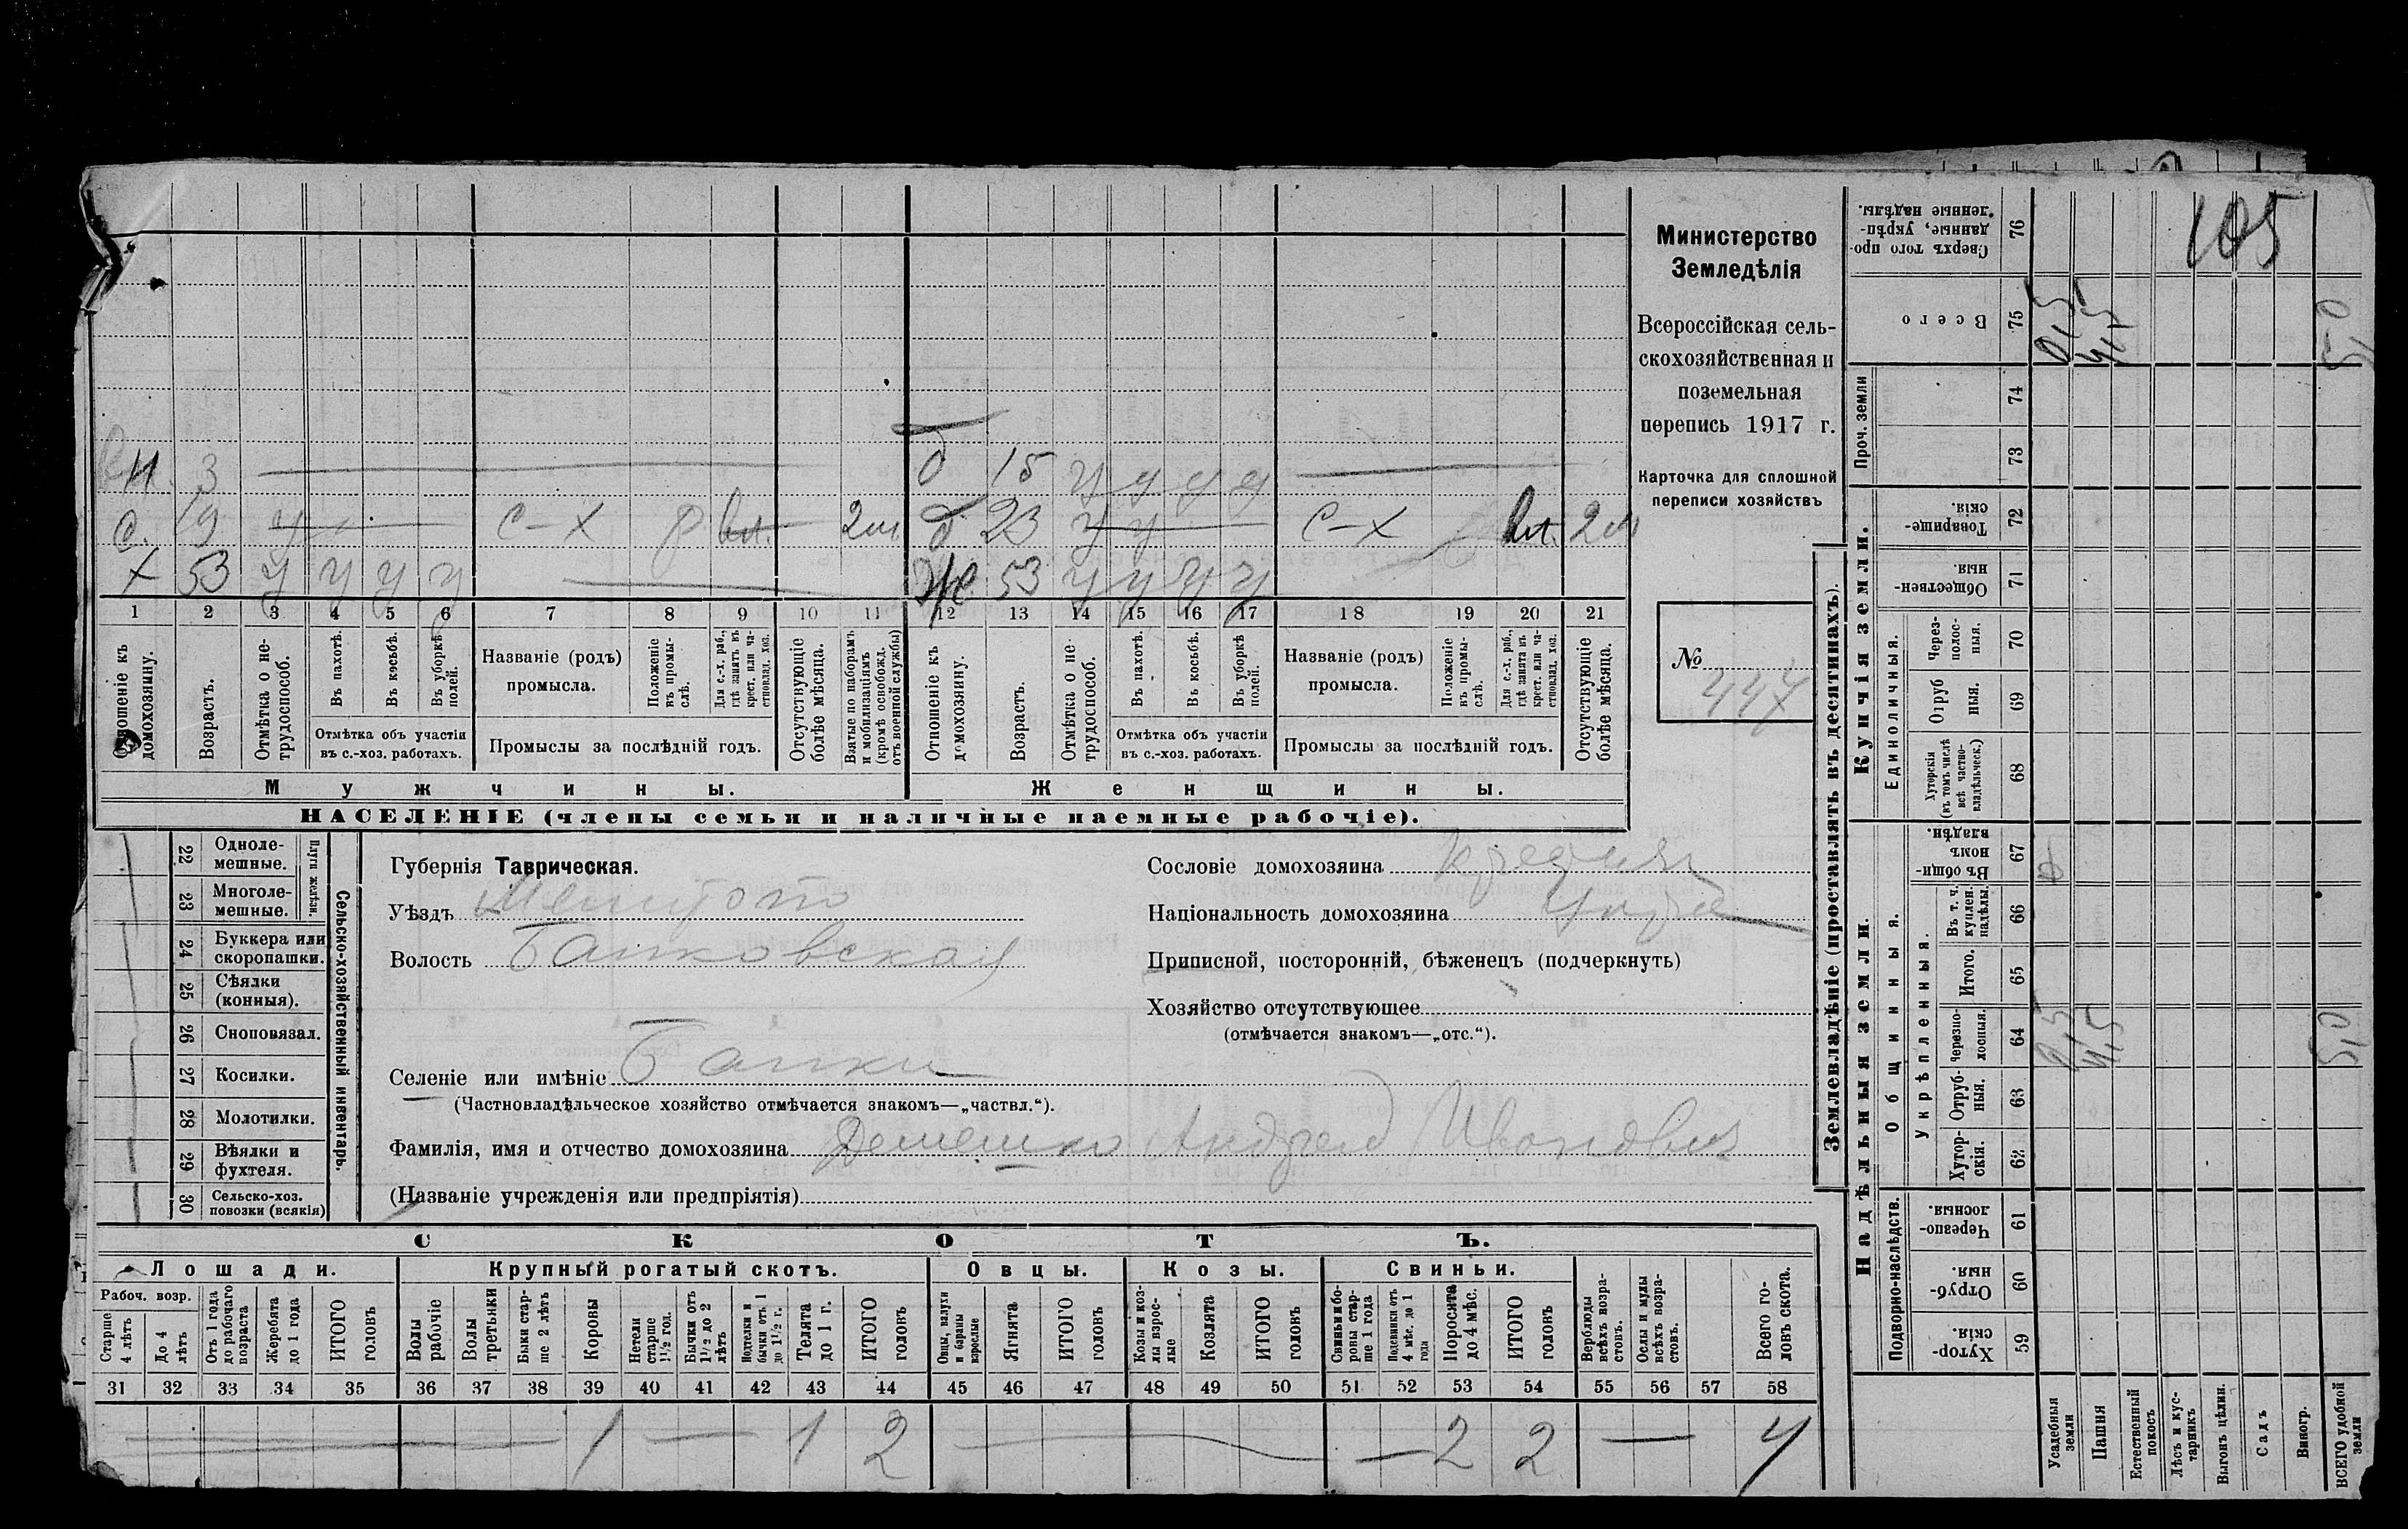 105
Министерство
Земледѣлія
Всероссійская сель-
скохозяйственная и
поземельная
перепись 1917 г.
Карточка для сплошной
переписи хозяйствъ
№ 447
3
д 15 у у у у
с. 19 у с-х р вл. 2м
д 23 у у с-х вл. 2м
х 53 у у у у
ж 53 у у у у
1 2 3 4 5 6 7 8 9 10 11 12 13 14 15 16 17 18 19 20 21
Отношеніе къ домохозяину.
Возрастъ.
Отмѣтка о не-трудоспособ.
Въ пахотѣ.
Въ косьбѣ.
Въ уборкѣ полей.
Отмѣтка объ участіи
въ с.-хоз. работахъ.
Названіе (родъ)
промысла.
Положеніе въ промы-слѣ.
Для с.-х. раб., гдѣ занятъ въ крест. или ча-стновлад. хоз.
Промыслы за послѣдній годъ.
Отсутствующіе болѣе мѣсяца.
Взятые по наборамъ и мобилизаціямъ (кромѣ освобожд. отъ военной службы)
Отношеніе къ домохозяину.
Возрастъ.
Отмѣтка о не-трудоспособ.
Въ пахотѣ.
Въ косьбѣ.
Въ уборкѣ полей.
Отмѣтка объ участіи
въ с.-хоз. работахъ.
Названіе (родъ)
промысла.
Положеніе въ промы-слѣ.
Для с.-х. раб., гдѣ занята въ крест. или ча-стновлад. хоз.
Промыслы за послѣдній годъ.
Отсутствующіе болѣе мѣсяца.
Мужчины.
Женщины.
НАСЕЛЕНІЕ (члены семьи и наличные наемные рабочіе).
Сельско-хозяйственный инвентарь.
Плуги желѣзн.
22 Одноле-мешные.
23 Многоле-мешные.
24 Буккера или скоропашки.
25 Сѣялки (конныя).
26 Сноповязал.
27 Косилки.
28 Молотилки.
29 Вѣялки и фухтеля.
30 Сельско-хоз. повозки (всякія)
Губернія Таврическая.
Уѣздъ Мелитопо
Волость Банковская
Селеніе или имѣніе Банки
(Частновладѣльческое хозяйство отмѣчается знакомъ—„частвл.“).
Фамилія, имя и отчество домохозяина Демешко Андрей Иванович
(Названіе учрежденія или предпріятія)
Сословіе домохозяина
Національность домохозяина Укра
Приписной, посторонній, бѣженецъ (подчеркнуть)
Хозяйство отсутствующее
(отмѣчается знакомъ—„отс.“).
СКОТЪ.
Лошади. Крупный рогатый скотъ. Овцы. Козы. Свиньи.
Рабоч. возр.
Старше 4 лѣтъ
До 4 лѣтъ
Отъ 1 года до рабочаго возраста
Жеребята до 1 года
ИТОГО головъ
Волы рабочіе
Волы третьяки
Быки стар-ше 2 лѣтъ
Коровы
Нетели старше 1½ год.
Бычки отъ 1½ до 2 лѣтъ
Подтелки и бычки отъ 1 до 1½ г.
Телята до 1 г.
ИТОГО головъ
Овцы, валухи и бараны взрослые
Ягнята
ИТОГО головъ
Козы и коз-лы взрос-лые
Козлята
ИТОГО головъ
Свиньи и бо-ровы стар-ше 1 года
Подсвинки отъ 4 мѣс. до 1 года
Поросята до 4 мѣс.
ИТОГО головъ
Верблюды всѣхъ возра-стовъ.
Ослы и мулы всѣхъ возра-стовъ.
Всего го-ловъ скота.
31 32 33 34 35 36 37 38 39 40 41 42 43 44 45 46 47 48 49 50 51 52 53 54 55 56 57 58
1 — 1 2 — 2 2 — 4
Землевладѣніе (проставлять въ десятинахъ).
Купчія земли.
Надѣльныя земли.
Сверхъ того про-данные, укрѣп-ленные надѣлы. 76
Всего 75 0,5 4,5 5,0
Проч. земли 74 73
Товарище-скія. 72
Обществен-ныя. 71
Единоличныя.
Через-полос-ныя. 70
Отруб ныя. 69
Хуторскія (въ томъ числѣ всѣ частно-владѣльческ.) 68
Общинныя.
Въ общи-номъ владѣн. 67
Укрѣпленныя.
Въ т. ч. куплен. надѣлы. 66
Итого. 65
Черезпо-лосныя. 64 0,5 4,5 5,0
Отруб-ныя. 63
Хутор-скія. 62
Подворно-наслѣдств.
Черезпо-лосныя. 61
Отруб-ныя. 60
Хутор-скія. 59
Усадебныя земли
Пашня
Естественный покосъ
Лѣсъ и кус-тарникъ
Выгонъ цѣлин.
Садъ
Виногр.
ВСЕГО удобной земли